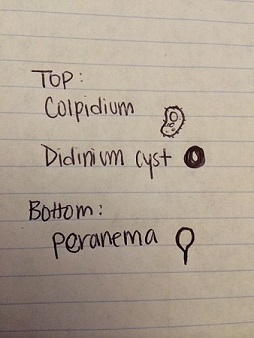 Top:
Colpidium
Didinium cyst
Bottom:
peranema